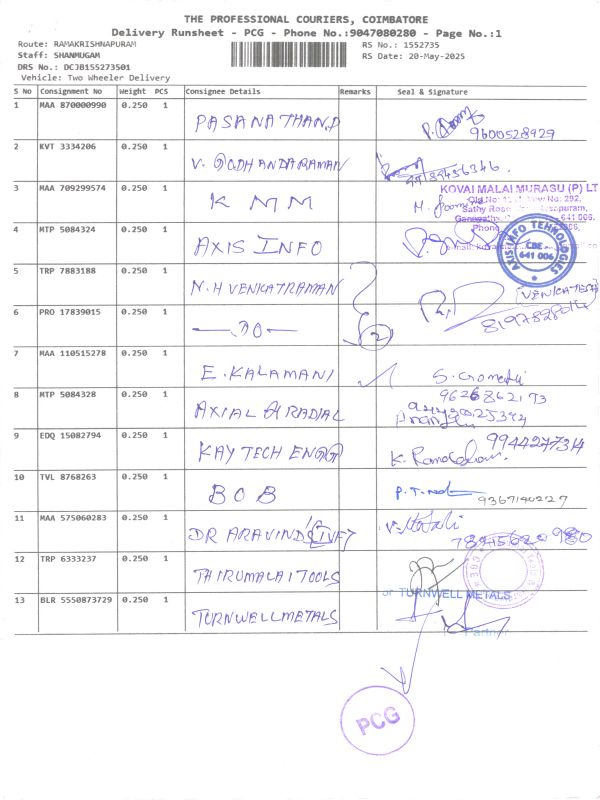 THE PROFESSIONAL COURIERS, COIMBATORE
Delivery Runsheet - PCG - Phone No.:9047080280 - Page No.:1
Route: RAMAKRISHNAPURAM
RS No.: 1552735
Staff: SHANMUGAM
RS Date: 20-May-2025
DRS No.: DCJ8155273501
Vehicle: Two Wheeler Delivery
S No Consignment No Weight PCS Consignee Details Remarks Seal & Signature
1 MAA 870000990 0.250 1 PASANATHAN.P
9600528929
2 KVT 3334206 0.250 1 V. GODHANDARAMAN
3 MAA 709299574 0.250 1 KMM
KOVAI MALAI MURASU (P) LT
4 MTP 5084324 0.250 1 AXIS INFO
AXIS INFO TEHNOLOGIES
CBE
641 006
5 TRP 7883188 0.250 1 N.H VENKATRAMAN
6 PRO 17839015 0.250 1 —DO— 2
7 MAA 110515278 0.250 1 E. KALAMANI
8 MTP 5084328 0.250 1 AXIAL RADIAL
9 EDQ 15082794 0.250 1 KAY TECH ENGG
9944277314
10 TVL 8768263 0.250 1 BOB
9367140227
11 MAA 575060283 0.250 1 DR ARAVIND'S IVF
12 TRP 6333237 0.250 1 THIRUMALAI TOOLS
13 BLR 5550873729 0.250 1 TURNWELL METALS
or TURNWELL METALS
Partner
PCG